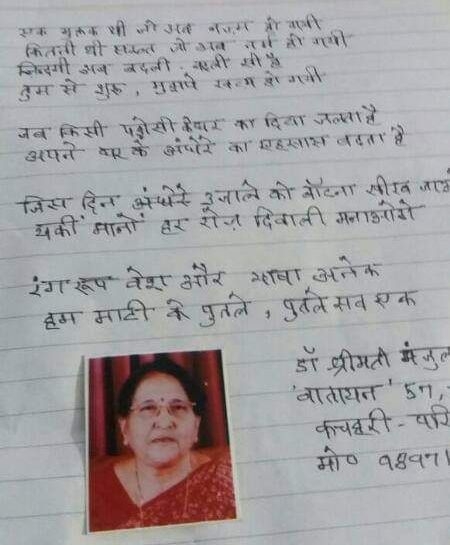 एक थी जो अब नज़्म हो गयी
कितनी थी सख्त जो अब नर्म हो गयी
ज़िन्दगी अब बदली, सी है
तुम से शुरु, मुझपे खत्म हो गयी
जब किसी पड़ोसी के घर का दिया जलता है
अपने घर के अंधेरे का एहसास बढ़ता है
जिस दिन अंधेरे उजाले को बाँटना सीख
यकीं मानों हर रोज़ दिवाली मनाओगे
रंग रूप वेश और भाषा अनेक
हम माटी के पुतले, पुतले सब एक
डॉ श्रीमती
'वातायन' 57,
कचहरी -
मो० 98971